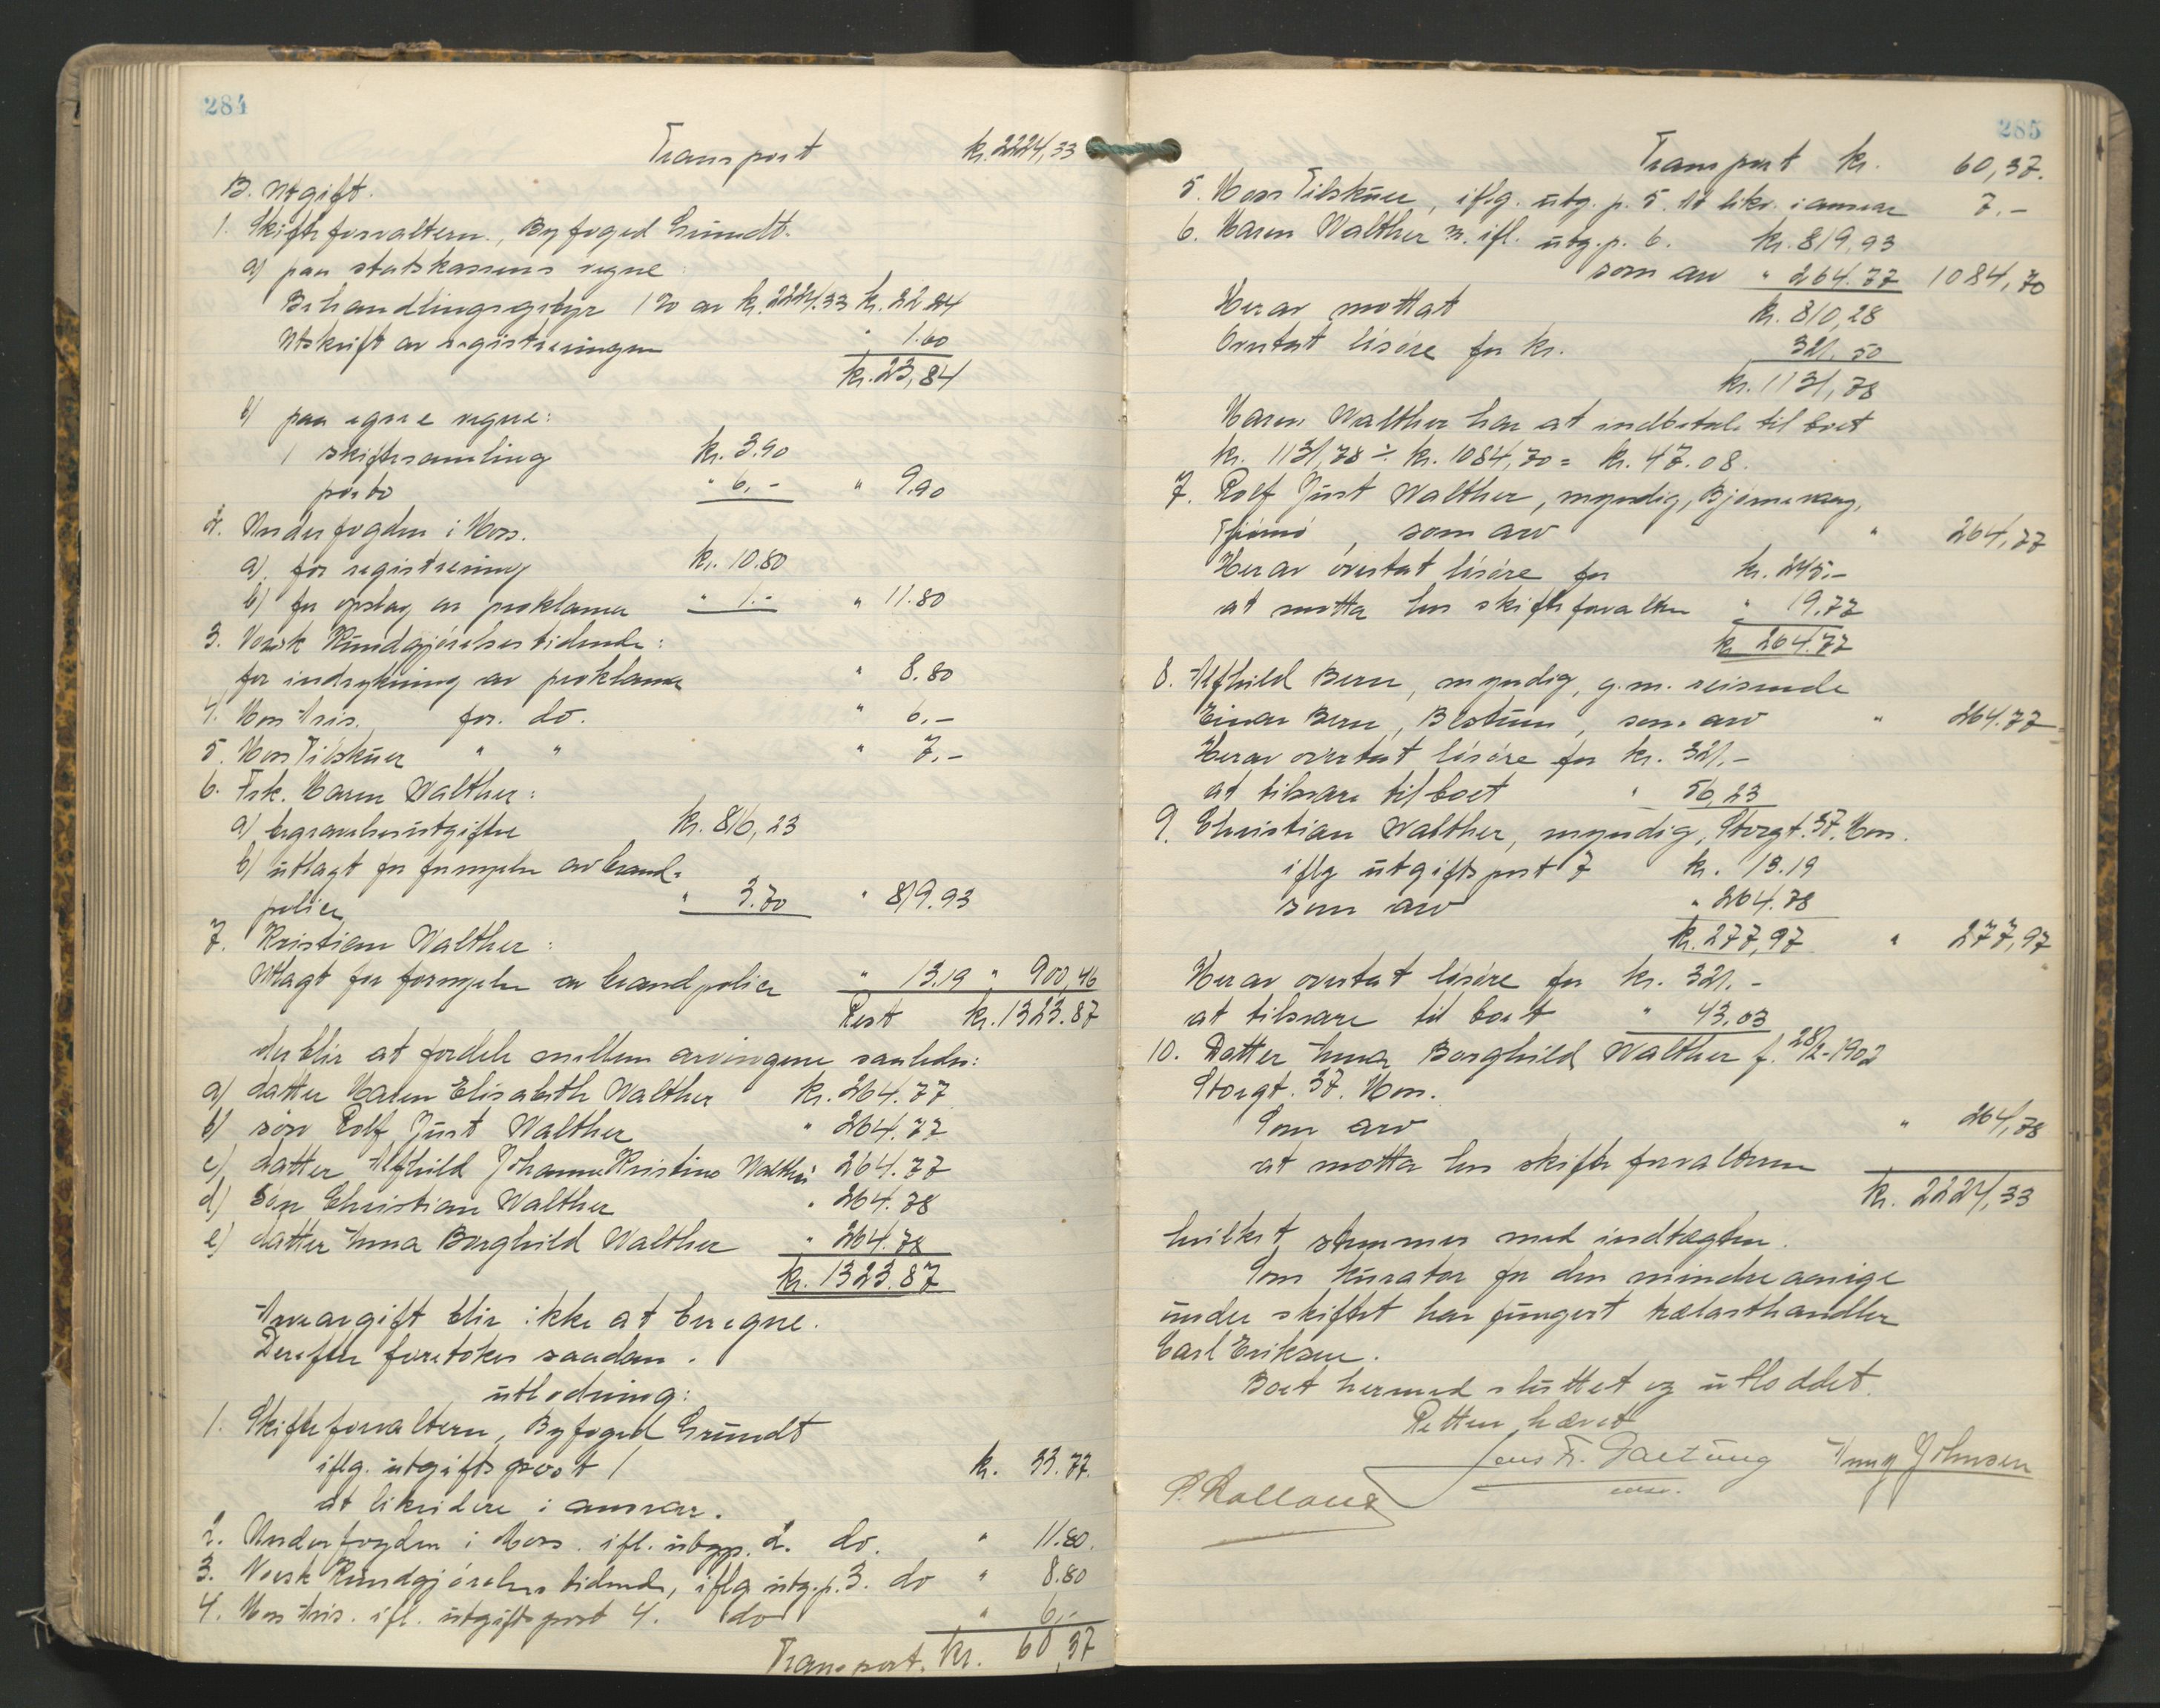 284
Transport kr. 2224,33
B. Utgift.
1. Skifteforvalteren, Byfoged Gründt.
a) paa statskassens regne:
Behandlingsgebyr 1% av kr. 2224.33 kr. 22.24
Utskrift av registreringen " 1.60
kr. 23,84
b) paa egne regne:
1 skiftesamling kr. 3.90
porto " 6,- " 9.90
2. Underfogden i Moss.
a) for registrering kr. 10.80
b) for opslag av proklama " 1.- " 11.80
3. Norsk Kundgjørelsestidende:
for indrykning av proklama " 8.80
4. Moss Avis. for. do. " 6.-
5. Moss Tilskuer " " " 7.-
6. Frk. Maren Walther:
a) begravelsesutgifter kr. 816,23
b) utlagt for fornyelse av brand-
police " 3.70 " 819.93
7. Kristian Walther:
Utlagt for fornyelse av brandpolice " 13.19 " 900,46
Rest kr. 1323.87
der blir at fordele mellem arvingene saaledes:
a) datter Maren Elisabeth Walther kr. 264.77
b) søn Rolf Just Walther " 264.77
c) datter Alfhild Johanne Kristine Walther 264.77
d) søn Christian Walther " 264.78
e) datter Anna Borghild Walther " 264.78
kr. 1323.87
Arveavgift blir ikke at beregne.
Derefter foretokes saadan
utlodning:
1. Skifteforvalteren, Byfoged Gründt
iflg. utgiftspost 1 kr. 33.77.
at likvidere i ansvar.
2. Underfogden i Moss. ifl. utgp. 2. do. " 11.80.
3. Norsk Kundgjørelsestidende, iflg utg.p. 3. do " 8.80
4. Moss Avis. ifl. utgiftspost 4. do " 6,-
Transport. kr. 60,37
285
Transport kr. 60,37.
5. Moss Tilskuer, iflg. utg. p. 5. At likv. i ansvar 7.-
6. Maren Walther m. ifl. utg.p. 6. kr. 819,93
som arv " 264.77 1084,70
Herav mottat kr. 810,28
Overtat løsøre for kr. 321.50
kr. 1131,78
Maren Walther har at indbetale til boet
kr. 1131,78 ÷ kr. 1084,70 = kr. 47.08.
7. Rolf Just Walther, myndig, Bjørnevaag,
Tjømø, som arv " 264,77
Herav overtat løsøre for kr. 245.-
at motta hos skifteforvalteren " 19.77
kr. 264.77
8. Alfhild Bern, myndig, g.m. reisende
Einar Bern, Bestum, som arv " 264.77
Herav overtat løsøre for kr. 321.-
at tilsvare til boet " 56,23
9. Christian Walther, myndig, Storgt. 37. Moss.
iflg utgiftspost 7 kr. 13.19
som arv " 264.78
kr. 277,97 " 277,97
Herav overtat løsøre for kr. 321.-
at tilsvare til boet " 43,03
10. Datter Anna Borghild Walther f. 28/2-1902
Storgt. 37. Moss.
Som arv " 264,78
at motta hos skifteforvalteren
kr. 2224,33
hvilket stemmer med indtægten.
Som kurator for den mindreaarige
under skiftet har fungert trælasthandler
Carl Eriksen.
Boet hermed sluttet og utloddet.
Retten hævet
Jens Fr. Anny Johnsen